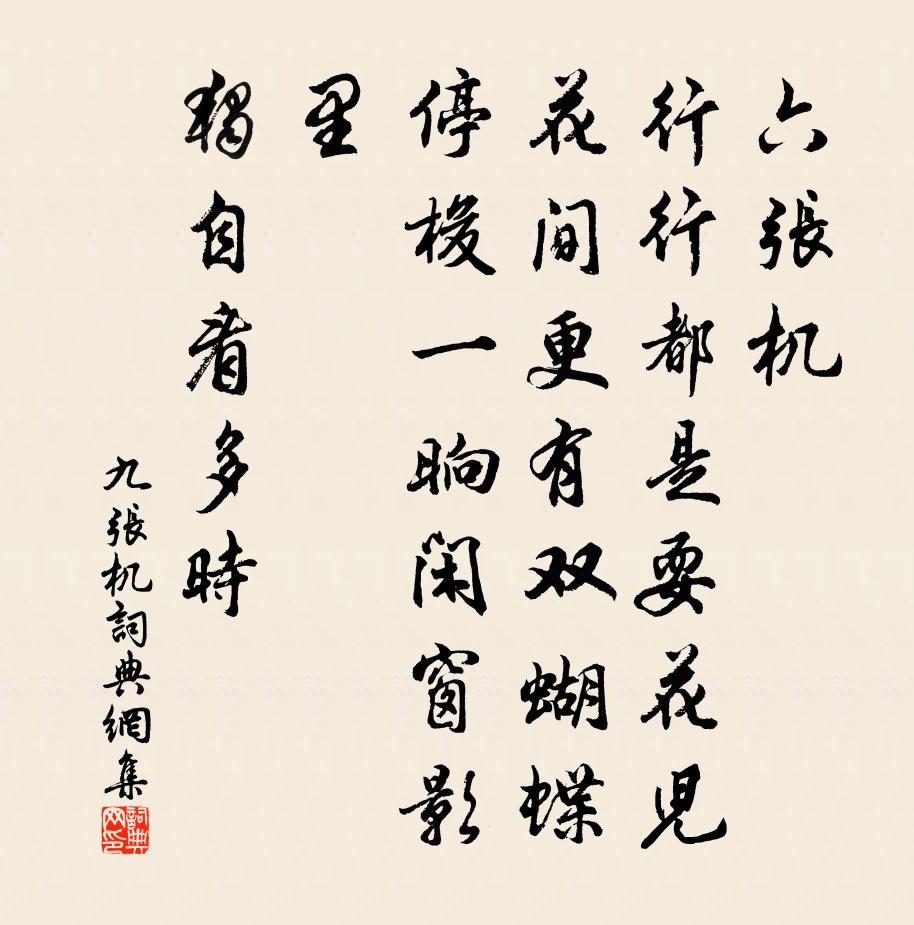 六張机
行行都是耍花兒
花間更有双蝴蝶
停梭一晌閑窗影
里
獨自看多時
九張机詞典網集
詞典网印